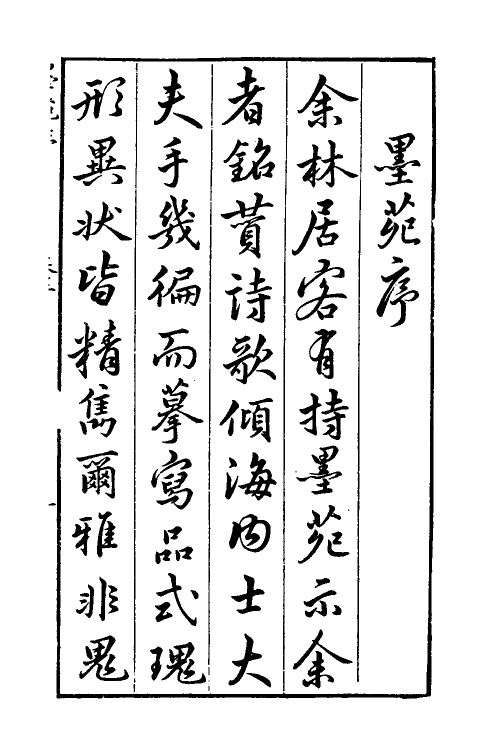 墨苑序
余林居客有持墨苑示余
者銘賛詩歌傾海内士大
夫手幾徧而摹寫品式瑰
形異状皆精雋爾雅非鬼